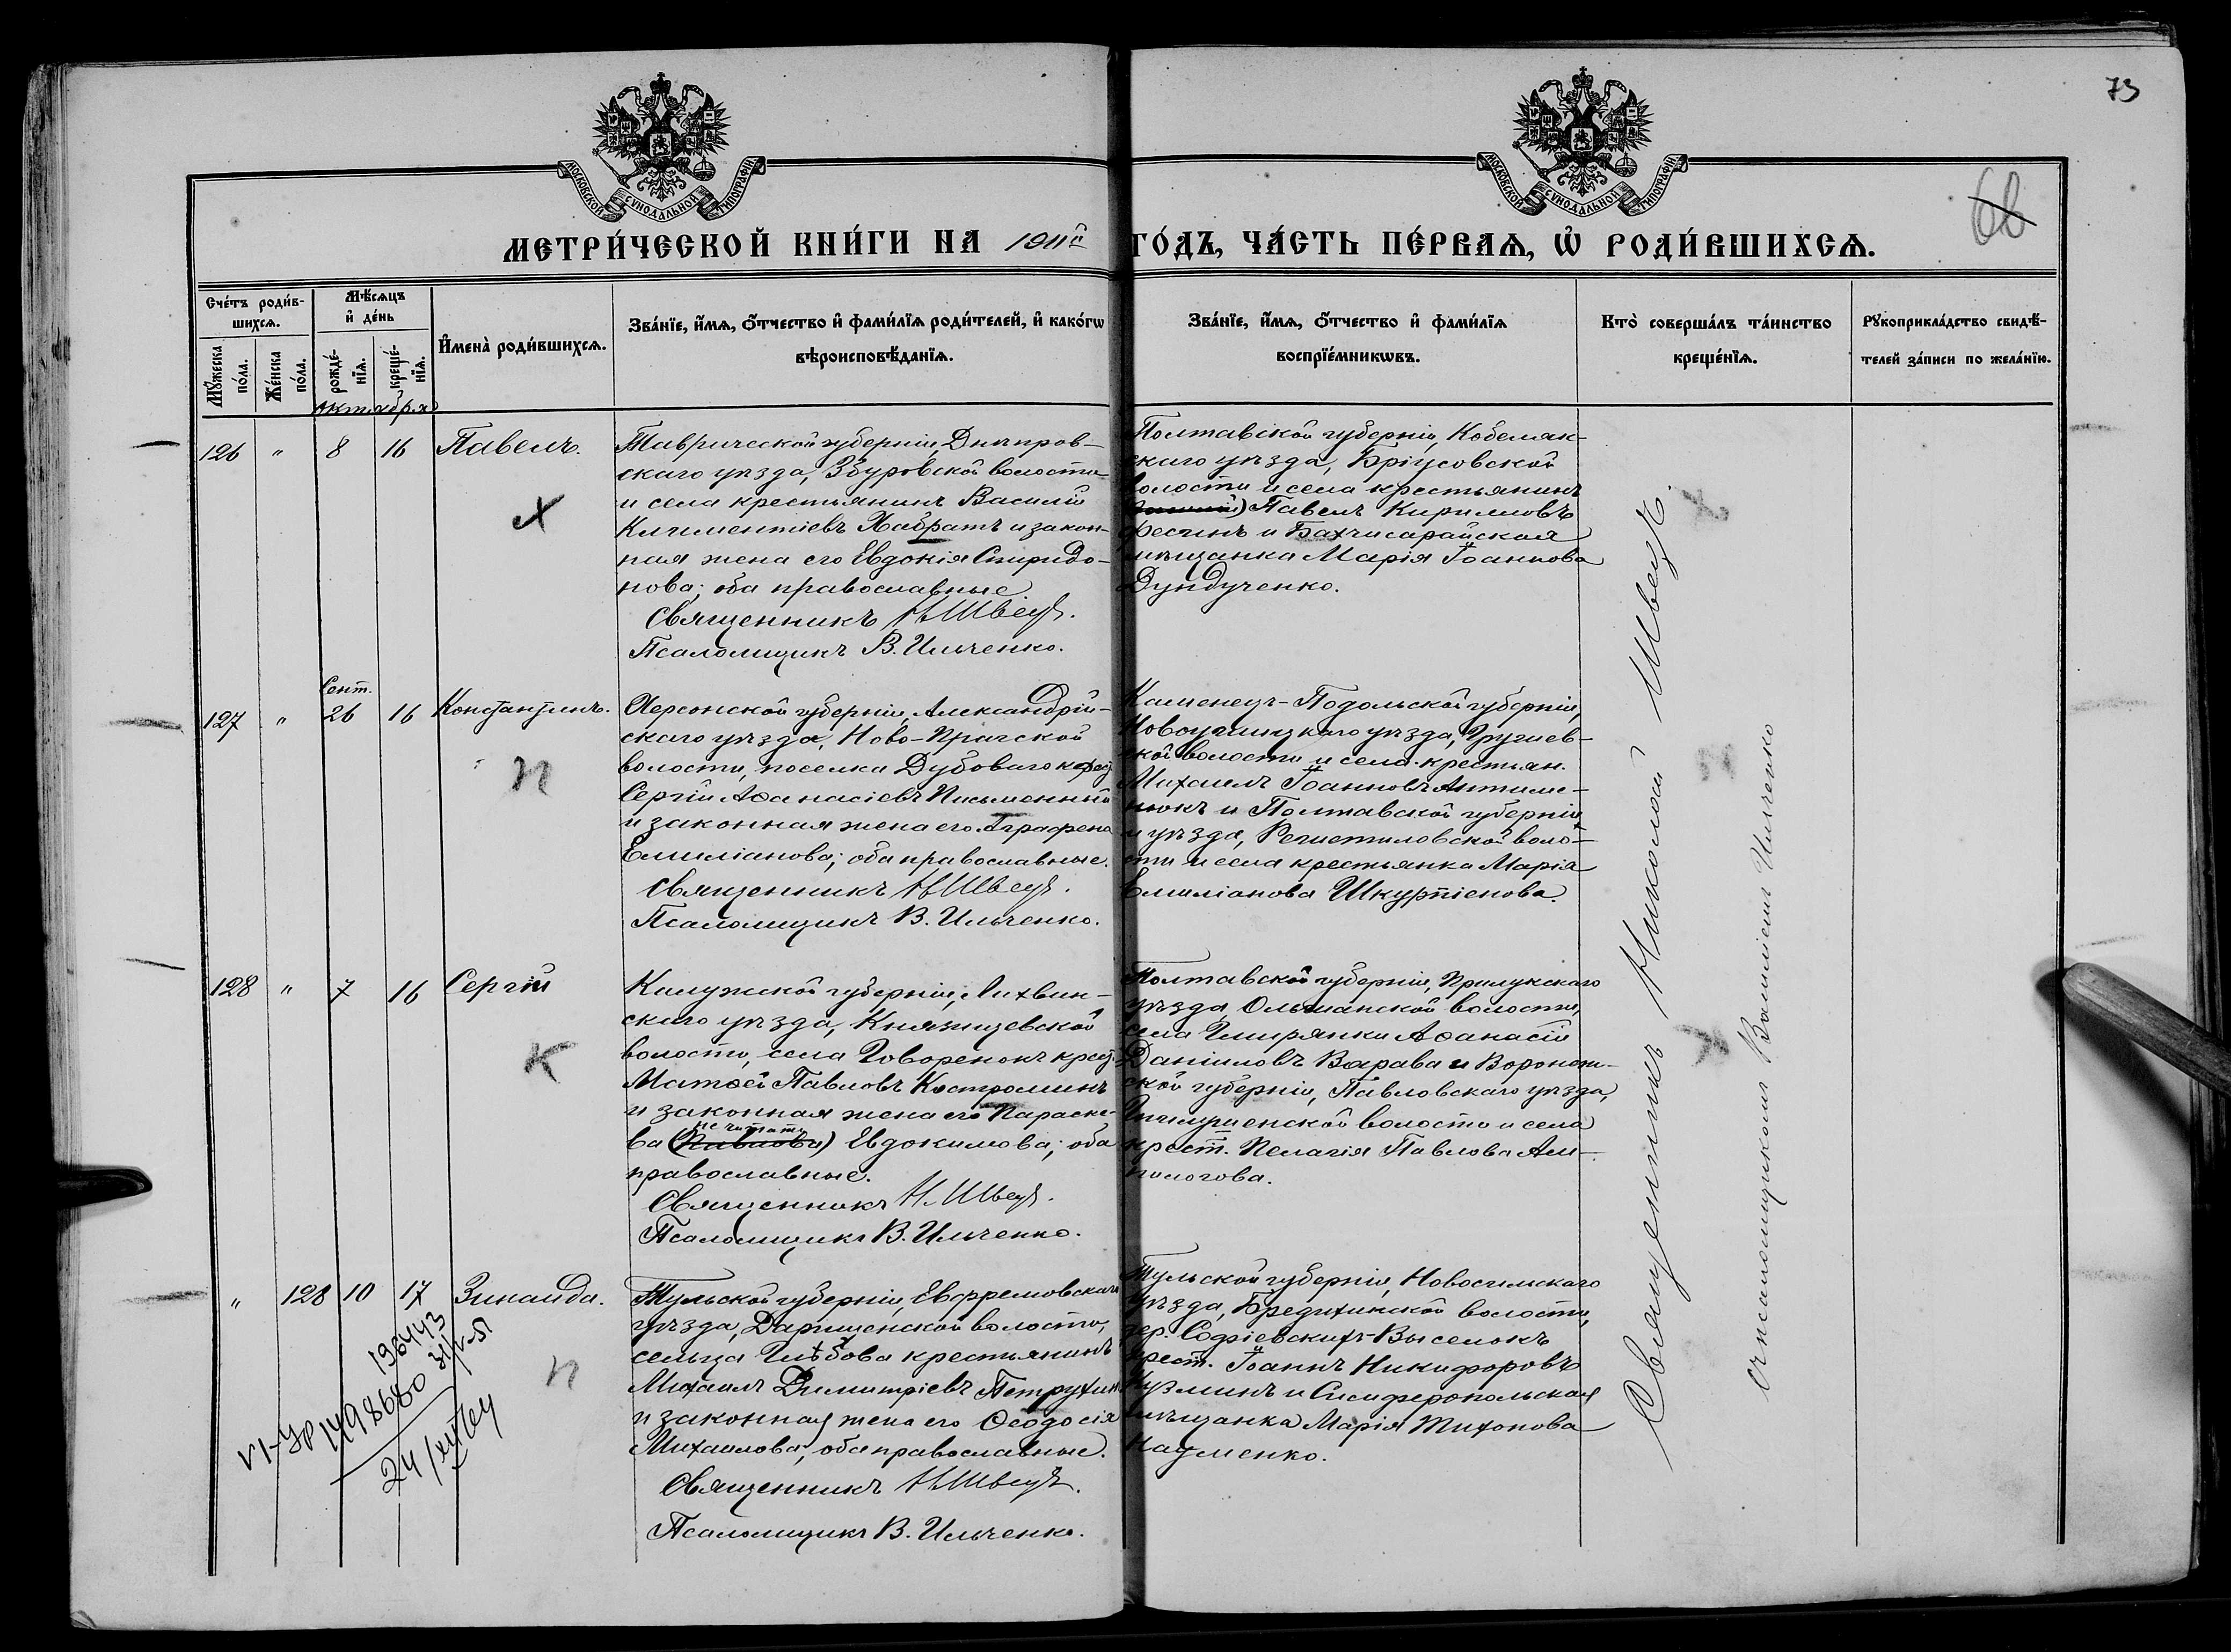 73
68
МОСКОВСКОЙ СѴНОДАЛЬНОЙ ТИПОГРАФІИ
МОСКОВСКОЙ СѴНОДАЛЬНОЙ ТИПОГРАФІИ
МЕТРИ́ЧЕСКОЙ КНИ́ГИ НА 1911й ГО́ДЪ, ЧА́СТЬ ПЕ́РВАѦ, Ѡ҆ РОДИ́ВШИХСѦ.
Сче́тъ роди́в-
шихсѧ.
Мꙋ́жеска
по́ла.
Же́нска
по́ла.
Мѣ́сѧцъ
и҆ де́нь
рожде́-
нїѧ.
креще́-
нїѧ.
И҆мена̀ роди́вшихсѧ.
Зва́нїе, и҆́мѧ, ѻ҆́тчество и҆ фами́лїѧ роди́телей, и҆ како́гѡ
вѣроисповѣ́данїѧ.
Зва́нїе, и҆́мѧ, ѻ҆́тчество и҆ фами́лїѧ
воспрїе́мникѡвъ.
Кто̀ соверша́лъ та́инство
креще́нїѧ.
Рꙋкоприкла́дство свидѣ́-
телей за́писи по жела́нїю.
Октября
126 " 8 16 Павелъ.
Таврической губерніи, Днѣпров-
скаго уѣзда, Збурьевской волости
и села крестьянинъ Василій
Климентіевъ Хабратъ и закон-
ная жена его Евдокія Спиридо-
нова; оба православные.
Священникъ Н. Швецъ.
Псаломщикъ В. Ильченко.
Полтавской губерніи, Кобеляк-
скаго уѣзда, Бріусовской
волости и села крестьянинъ
Павелъ Кирилловъ
Фесинъ и Бахчисарайская
мѣщанка Марія Іоаннова
Дундученко.
Сент.
127 " 26 16 Константинъ.
Херсонской губерніи, Александрій-
скаго уѣзда, Ново-Пражской
волости, поселка Дубоваго крест.
Сергій Аѳанасіевъ Письменный
и законная жена его Аграфена
Емиліанова; оба православные.
Священникъ Н. Швецъ.
Псаломщикъ В. Ильченко.
Каменецъ-Подольской губерніи,
Новоушицкаго уѣзда,
волости и села крестьян.
Михаилъ Іоанновъ Антими-
нюкъ и Полтавской губерніи
и уѣзда, Решетиловской воло-
сти и села крестьянка Марія
Емиліанова Шкурпіенова.
128 " 7 16 Сергій
Калужской губерніи, Лихвин-
скаго уѣзда, Княжищевской
волости, села Говоренокъ крест.
Матѳей Павловъ Костроминъ
и законная жена его Параске-
ва (Павлова) не читать Евдокимова; оба
православные.
Священникъ Н. Швецъ.
Псаломщикъ В. Ильченко.
Полтавской губерніи, Прилукскаго
уѣзда, Ольшанской волости,
села Гмирянки Аѳанасій
Даніиловъ Варава и Воронеж-
ской губерніи, Павловскаго уѣзда,
волости и села
крест. Пелагія Павлова Ам-
пологова.
" 128 10 17 Зинаида.
Тульской губерніи, Ефремовскаго
уѣзда, Дарищенской волости,
сельца Глѣбова крестьянинъ
Михаилъ Димитріевъ Петрухинъ
и законная жена его Ѳеодосія
Михаилова, оба православные.
Священникъ Н. Швецъ.
Псаломщикъ В. Ильченко.
Тульской губерніи, Новосильскаго
уѣзда, Бредихинской волости,
дер. Софіевскихъ-Выселокъ
крест. Іоаннъ Никифоровъ
Кузминъ и Симферопольская
мѣщанка Марія Тихонова
Науменко.
Священникъ Николай Швецъ.
съ псаломщикомъ Василіемъ Ильченко